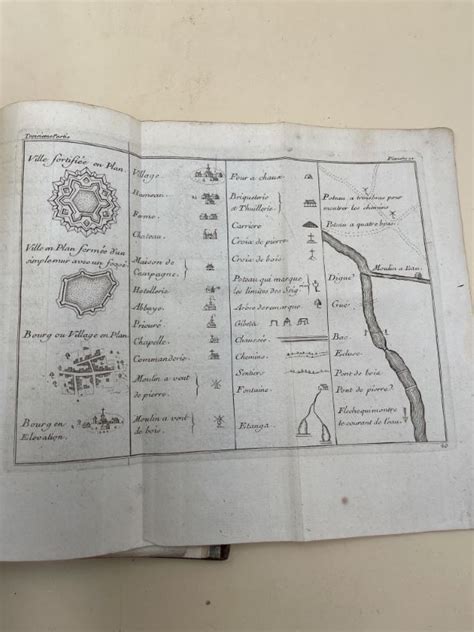 Troisieme Partie
Planche 21
Ville fortifiée en Plan.
Ville en Plan fermée d'un
simple mur avec un fossé
Bourg ou Village en Plan
Bourg en
Elevation.
Village
Hameau.
Ferme.
Chateau.
Maison de
Campagne.
Hotellerie.
Abbaye.
Prieuré
Chapelle.
Commanderie.
Moulin a vent
de pierre.
Moulin a vent
de bois.
Four a chaux
Briqueterie
et Thuillerie.
Carriere
Croix de pierre.
Croix de bois.
Poteau qui marque
les limites des Seig.
Arbre de remarque
Gibets
Chaussée
Chemins.
Sentiers
Fontaine.
Etangs.
Poteau a trois bras pour
montrer les chemins
Poteau a quatre bras.
Moulin a Eau.
Digue
Gué
Bac
Ecluse
Pont de bois
Pont de pierre
Fleche qui montre
le courant de l'eau.